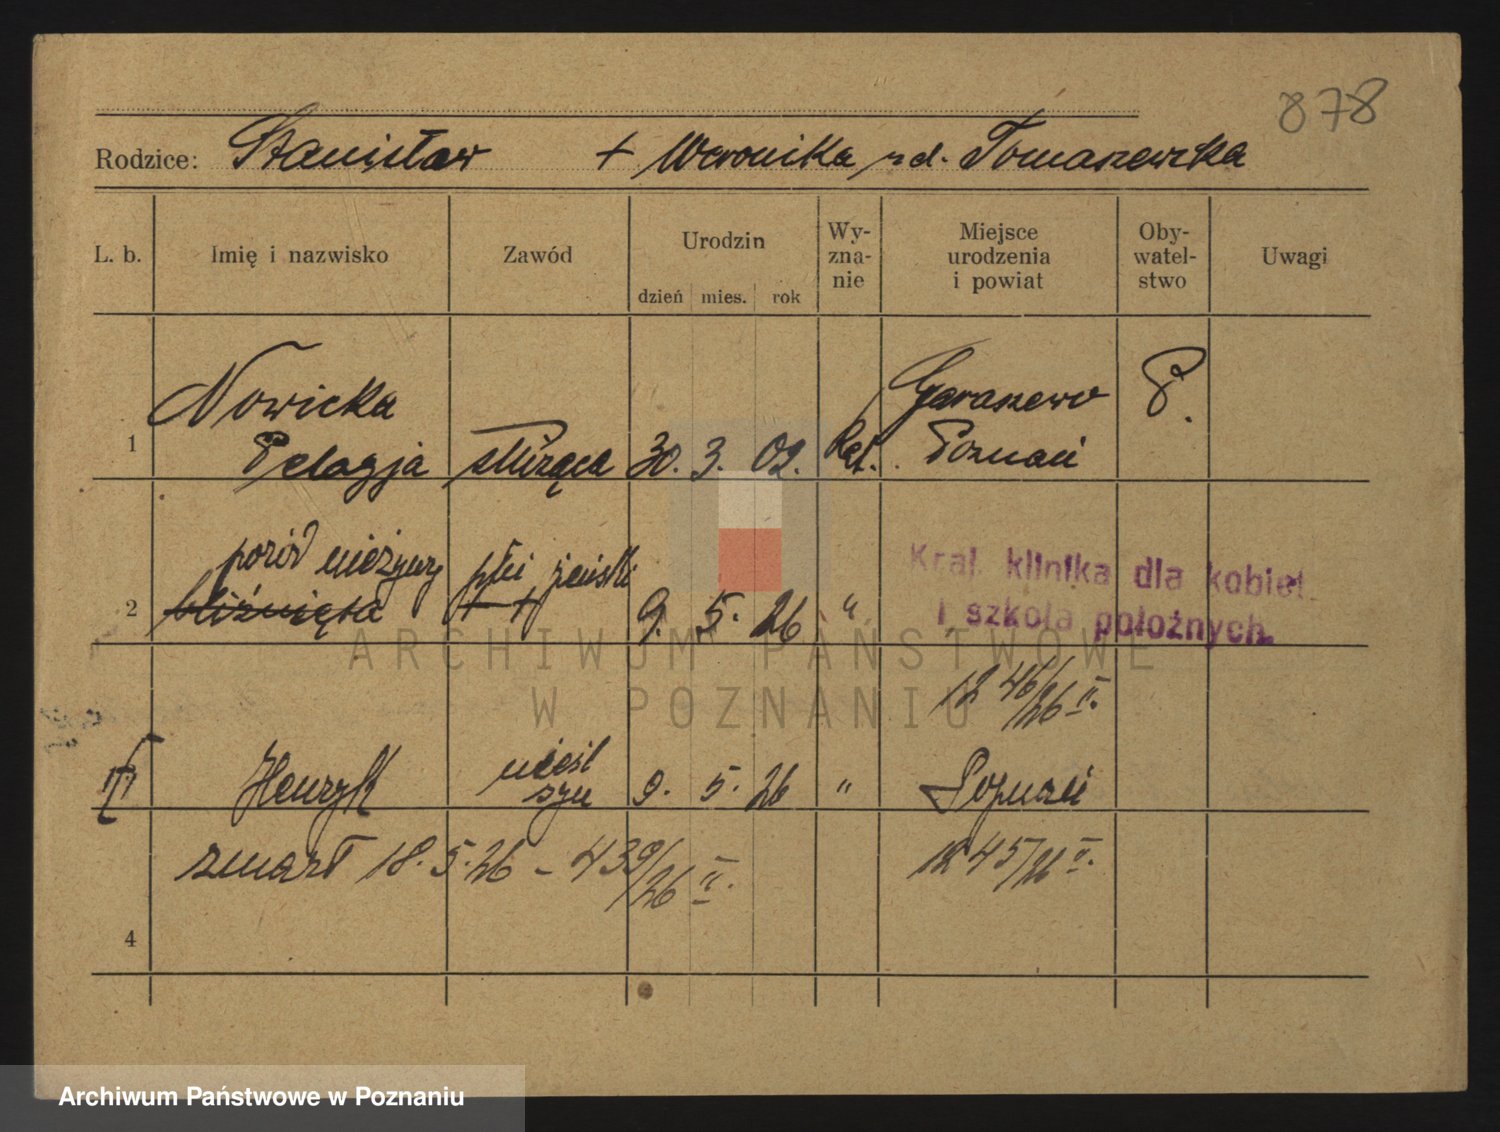 878
Rodzice: Stanisław + Weronika zd. Tomaszewska
L. b. Imię i nazwisko Zawód Urodzin dzień mies. rok Wy-zna-nie Miejsce urodzenia i powiat Oby-watel-stwo Uwagi
Nowicka Garaszewo P.
1 Pelagja służąca 30. 3. 02. kat. Poznań
poród nieżywy płci żeński Kral. klinika dla kobiet
2 bliźnięta ++ 9. 5. 26 " i szkoła położnych.
ARCHIWUM PAŃSTWOWE
W POZNANIU
1246/26 II.
Henryk nieśl szu 9. 5. 26 " Poznań
zmarł 18. 5. 26 - 439/26 II. 1245/26 II.
4
Archiwum Państwowe w Poznaniu